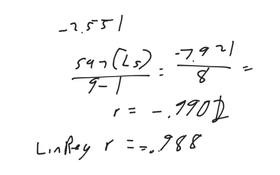 -2.551
sum(L5) / 9-1 = -7.921 / 8 =
r = -.990
LinReg r = -.988